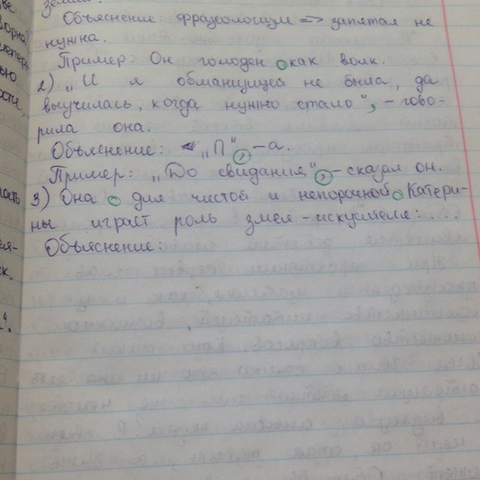 земли.
Объяснение фразеологизм => запятая не
нужна.
Пример: Он голоден как волк.
2) „И я обманщица не была, да
выучилась, когда нужно стало", - гово-
рила она.
Объяснение: „П", - а.
Пример: „До свидания", - сказал он.
3) Она для чистой и непорочной Катери-
ны играет роль змея-искусителя: ....
Объяснение: